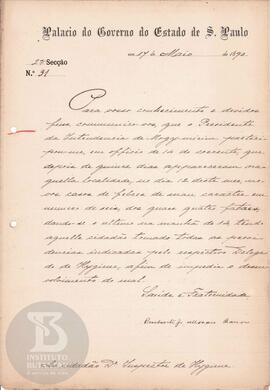 Palacio do Governo do Estado de S. Paulo
em 17 de Maio de 1890
2ª Secção
N.º 31
Para vosso conhecimento e devidos
fins communico-vos que o Presidente
da Intendencia de Mogy-mirim partici-
pou-me, em officio de 14 do corrente, que
depois de quinze dias appareceram na-
quella localidade, no dia 12 deste mez, no-
vos casos de febres de mau caracter em
numero de seis, dos quaes quatro fataes,
dando-se o ultimo na manhã de 14, tendo
aquelle cidadão tomado todas as provi-
dencias indicadas pelo respectivo Delega-
do de Hygiene, afim de impedir o desen-
volvimento do mal.
Saude e Fraternidade
Ao cidadão Dr. Inspector de Hygiene
INSTITUTO
BUTANTAN